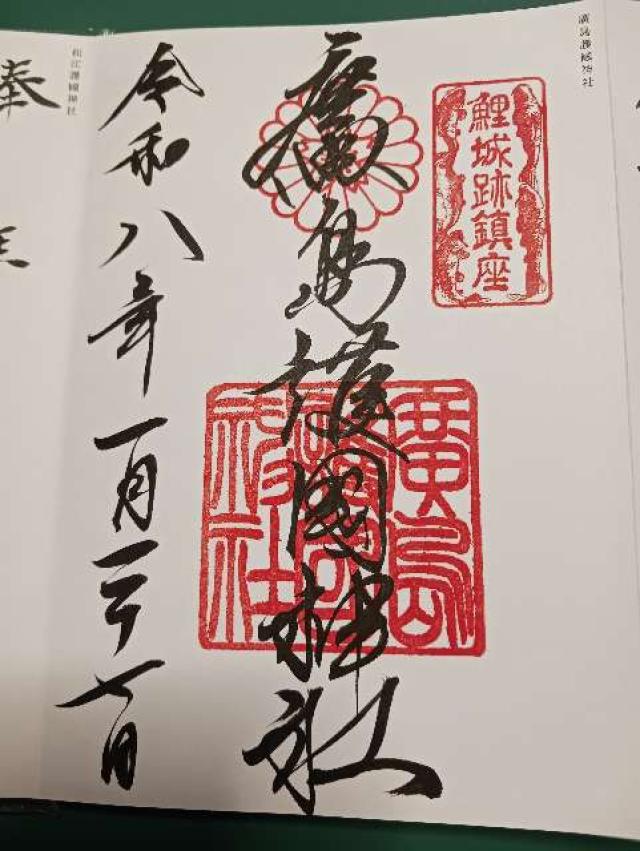 廣島護國神社
鯉城跡鎮座
廣島護國神社
廣島護國神社
令和八年一月二十七日
松江護國神社
奉